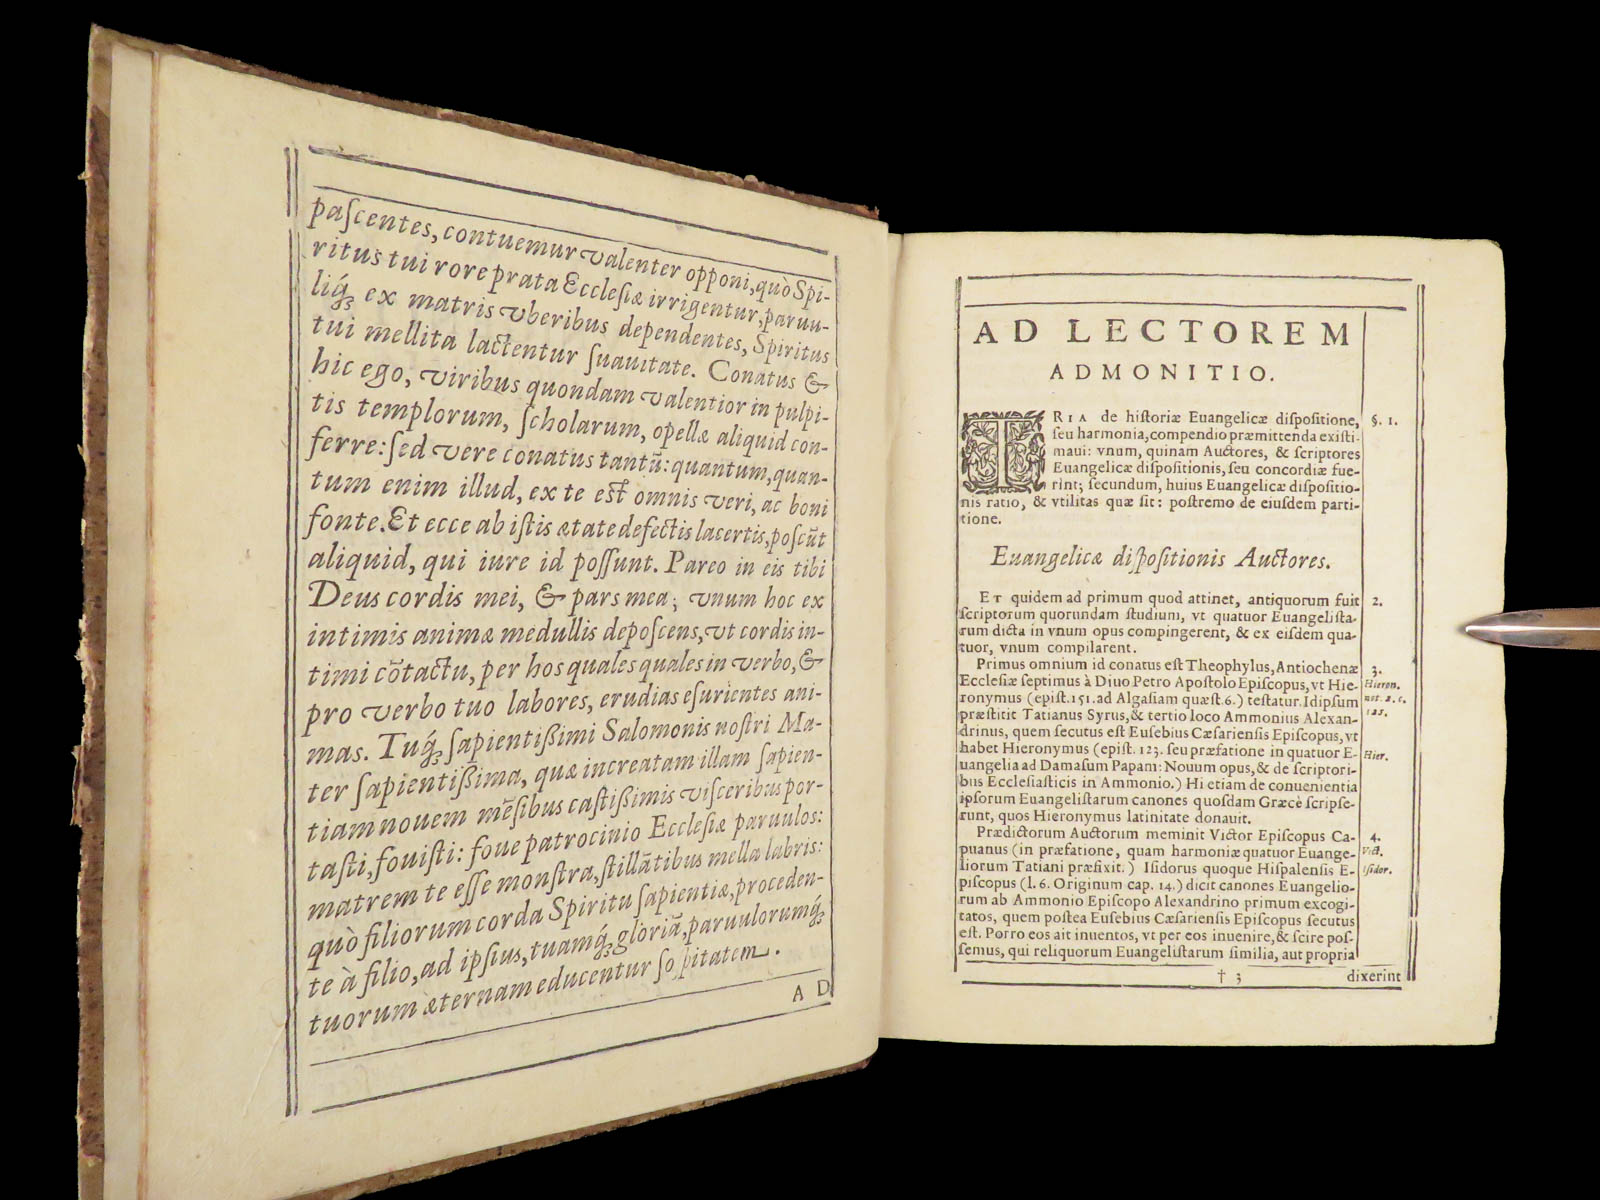 paſcentes, contuemur valenter opponi, quò Spi-
ritus tui rore prata Eccleſiæ irrigentur, paruu-
liq́ꝫ ex matris vberibus dependentes, Spiritus
tui mellita lactentur ſuauitate. Conatus &
hic ego, viribus quondam valentior in pulpi-
tis templorum, ſcholarum, opellæ aliquid con-
ferre: ſed vere conatus tantũ: quantum, quan-
tum enim illud, ex te eſt omnis veri, ac boni
fonte. Et ecce ab iſtis ætate defectis lacertis, poſcũt
aliquid, qui iure id poſſunt. Pareo in eis tibi
Deus cordis mei, & pars mea; vnum hoc ex
intimis animæ medullis depoſcens, vt cordis in-
timi cõtactu, per hos quales quales in verbo, &
pro verbo tuo labores, erudias eſurientes ani-
mas. Tuq́ꝫ ſapientißimi Salomonis noſtri Ma-
ter ſapientißima, quæ increatam illam ſapien-
tiam nouem mẽſibus caſtißimis viſceribus por-
taſti, fouiſti: foue patrocinio Eccleſiæ paruulos:
matrem te eſſe monſtra, ſtillãtibus mella labris:
quò filiorum corda Spiritu ſapientiæ, proceden-
te à filio, ad ipſius, tuamq́ꝫ gloriã, paruulorumq́ꝫ
tuorum æternam educentur ſoſpitatem.
AD
AD LECTOREM
ADMONITIO.
TRIA de hiſtoriæ Euangelicæ diſpoſitione, §. 1.
ſeu harmonia, compendio præmittenda exiſti-
maui: vnum, quinam Auctores, & ſcriptores
Euangelicæ diſpoſitionis, ſeu concordiæ fue-
rint; ſecundum, huius Euangelicæ diſpoſitio-
nis ratio, & vtilitas quæ ſit: poſtremo de eiuſdem parti-
tione.
Euangelicæ diſpoſitionis Auctores.
ET quidem ad primum quod attinet, antiquorum fuit 2.
ſcriptorum quorundam ſtudium, vt quatuor Euangeliſta-
rum dicta in vnum opus compingerent, & ex eiſdem qua-
tuor, vnum compilarent.
Primus omnium id conatus eſt Theophylus, Antiochenæ 3.
Eccleſiæ ſeptimus à Diuo Petro Apoſtolo Epiſcopus, vt Hie- Hieron.
ronymus (epiſt. 151. ad Algaſiam quæſt. 6.) teſtatur. Idipſum not. 2. c.
præſtitit Tatianus Syrus, & tertio loco Ammonius Alexan- 125.
drinus, quem ſecutus eſt Euſebius Cæſarienſis Epiſcopus, vt
habet Hieronymus (epiſt. 123. ſeu præfatione in quatuor E- Hier.
uangelia ad Damaſum Papam: Nouum opus, & de ſcriptori-
bus Eccleſiaſticis in Ammonio.) Hi etiam de conuenientia
ipſorum Euangeliſtarum canones quoſdam Græcè ſcripſe-
runt, quos Hieronymus latinitate donauit.
Prædictorum Auctorum meminit Victor Epiſcopus Ca- 4.
puanus (in præfatione, quam harmoniæ quatuor Euange- Vict.
liorum Tatiani præfixit.) Iſidorus quoque Hiſpalenſis E- Iſidor.
piſcopus (l. 6. Originum cap. 14.) dicit canones Euangelio-
rum ab Ammonio Epiſcopo Alexandrino primum excogi-
tatos, quem poſtea Euſebius Cæſarienſis Epiſcopus ſecutus
eſt. Porro eos ait inuentos, vt per eos inuenire, & ſcire poſ-
ſemus, qui reliquorum Euangeliſtarum ſimilia, aut propria
† 3 dixerint